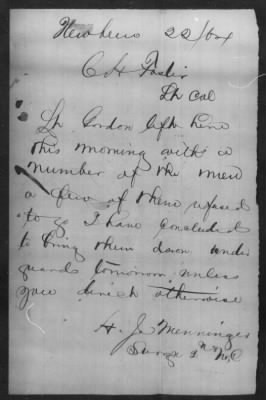 Newbern 22/64
C H Foster
Lt Col
Lt Gordon left here
this morning with a
number of the men
a few of them refused
to go I have concluded
to bring them down under
guards tomorrow unless
you direct otherwise
H. J. Menninger
Surg 1st N.C